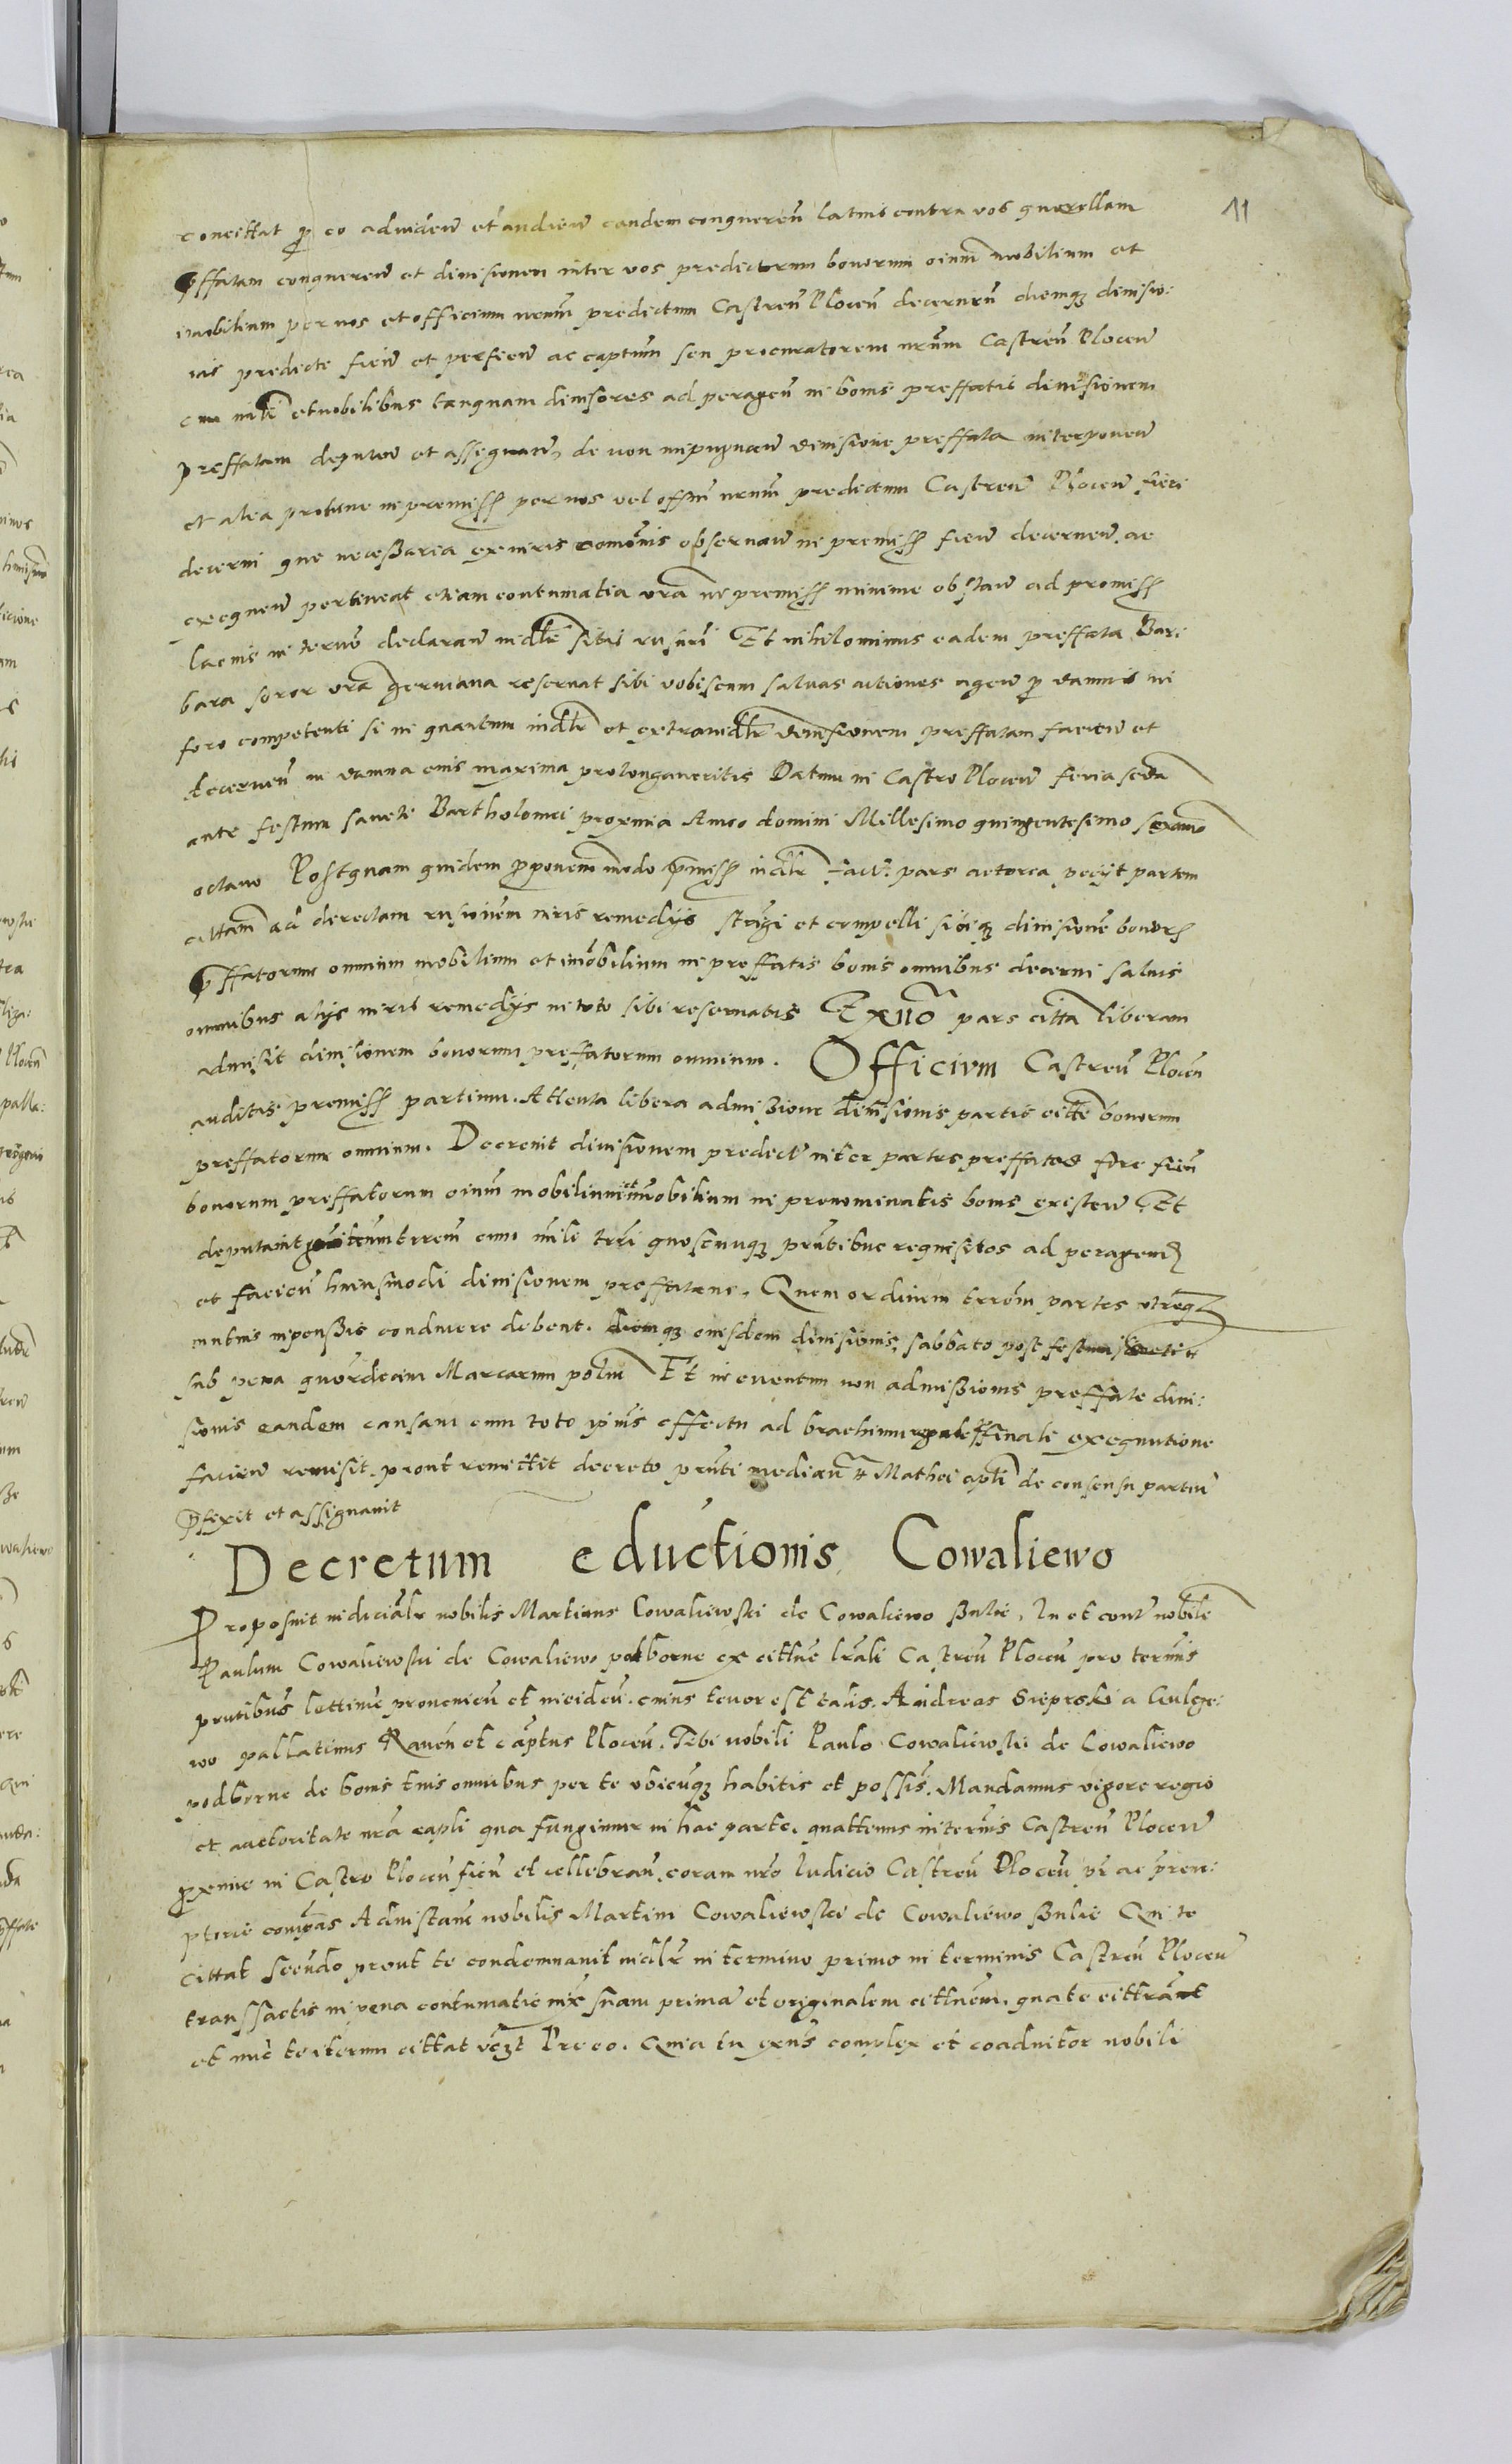 11
concittat p eo ad videnũ et audienũ eandem conqueren̄ latius contra vos querellam
p̄ffatam conquerenũ et divisionem inter vos predictorum bonorum oium̄ mobilium et
imobilium per nos et officium nrum̄ predictum Castren̄ Plocen̄ decernen̄ diemq₃ divisio:
nis predicte fienũ et perficũ ac captum̄ seu procuratorem nrum̄ Castren̄ Plocen̄
cum mīti et nobilibus tanquam divisores ad peragen̄ in bonis preffatis divisionem
preffatam deputanũ et assignanũ, de non impugnanũ divisione preffata interponenũ
et alia protunc in premiss per nos vel offm̄ nrum̄ predictum Castren̄ Plocen̄ fieri
decerni que necessaria ex iuris ordinis observanũ in premiss fienũ decernenũ ac
exequenũ pertineat etiam contumatia vrā in premiss minime obstanũ ad premiss
lacius in termō declaranũ iudtr̄ sitis rusuri Et nihilominus eadem preffata Bar:
bara soror vrā germana reservat sibi vobiscum salvas actiones agenũ p damnis in
foro competenti si in quantum iudtr̄ et extraiudtr̄ divisionem preffatam facienũ et
decernen̄ in damna eius maxima prolongaveritis Datum in Castro Plocen̄ feria scda
ante festum sancti Bartholomei proxima Anno domini Millesimo quingentesimo sexamo
octavo Postquam quidem p̱ponem̄ modo p̄miss iudtr̄ factū pars actorea petijt partem
cittam̄ ad derectam rusionem iuris remedijs stringi et compelli sibiq₃ divisionē bonorū
p̄ffatorum omnium mobilium et imobilium in preffatis bonis omnibus decerni salvis
omnibus alijs iuris remedijs in toto sibi reservatis Ex ađo pars citta liberam
admisit divisionem bonorum preffatorum omnium. Officium Castren̄ Plocen̄
auditis premiss partium. Attenta libera admissione divisionis partis citte bonorum
preffatorum omnium. Decrevit divisionem predictā inter partes preffatas fore fien̄
bonorum preffatorum oium̄ mobilium et im̄obilium in prenominatis bonis existenũ Et
deputavit terrem̄ cum mīli trri quoscunq₃ prn̄tibus requisitos ad peragend
et facien̄ huiusmodi divisionem preffatam. Quem ordinem terrem̄ partes utreq₃
mutuis inpensis conducere debent. diemq₃ eiusdem divisionis, sabbato post festum
sub pena quordecim Marcarum poln̄ Et in eventum non admissionis preffate divi:
sionis eandem causam cum toto ipius effectu ad brachium regale p finali exequutione
facienũ remisit. prout remittit decreto prn̄ti mediān̄ Mathei apli de consensu partiū
p̄fixit et assignavit
Decretum eductionis Cowaliewo
Proposuit iudicialr nobilis Martinus Cowaliewski de Cowaliewo Bulie, In et contr nobilē
Paulum Cowaliewski de Cowaliewo podborne ex cittne lrali Castren̄ Plocen̄ pro termīs
prn̄tibus lettime provenien̄ et inciden̄. cuius tenor est talis. Andreas Sieprski a Gulcze:
wo pallatinus Raven̄ et cāptus Plocen̄. Tibi nobili Paulo Cowaliewski de Cowaliewo
podborne de bonis tuis omnibus per te ubicunq₃ habitis et possis̄. Mandamus vigore regio
et auctoritate nrā capli qua fungimur in hac parte. quattenus in termīs Castren̄ Plocen̄
p̱xime in Castro Plocen̄ fien̄ et cellebran̄. coram nrō Iudicio Castren̄ Plocen̄ pr̄ ac prem:
ptorie compas Ad instam̄ nobilis Martini Cowaliewski de Cowaliewo Bulie Qui te
cittat Scūdo prout te condemnavit iudlr̄ in termino primo in terminis Castren̄ Plocen̄
transsactis in pena contumatie iux̄ suam primā et originalem cittnēm. qua te cittrāt
et nūc te iterum cittat ver₃t Preco. Quia tu exn̄s complex et coadiutor nobili